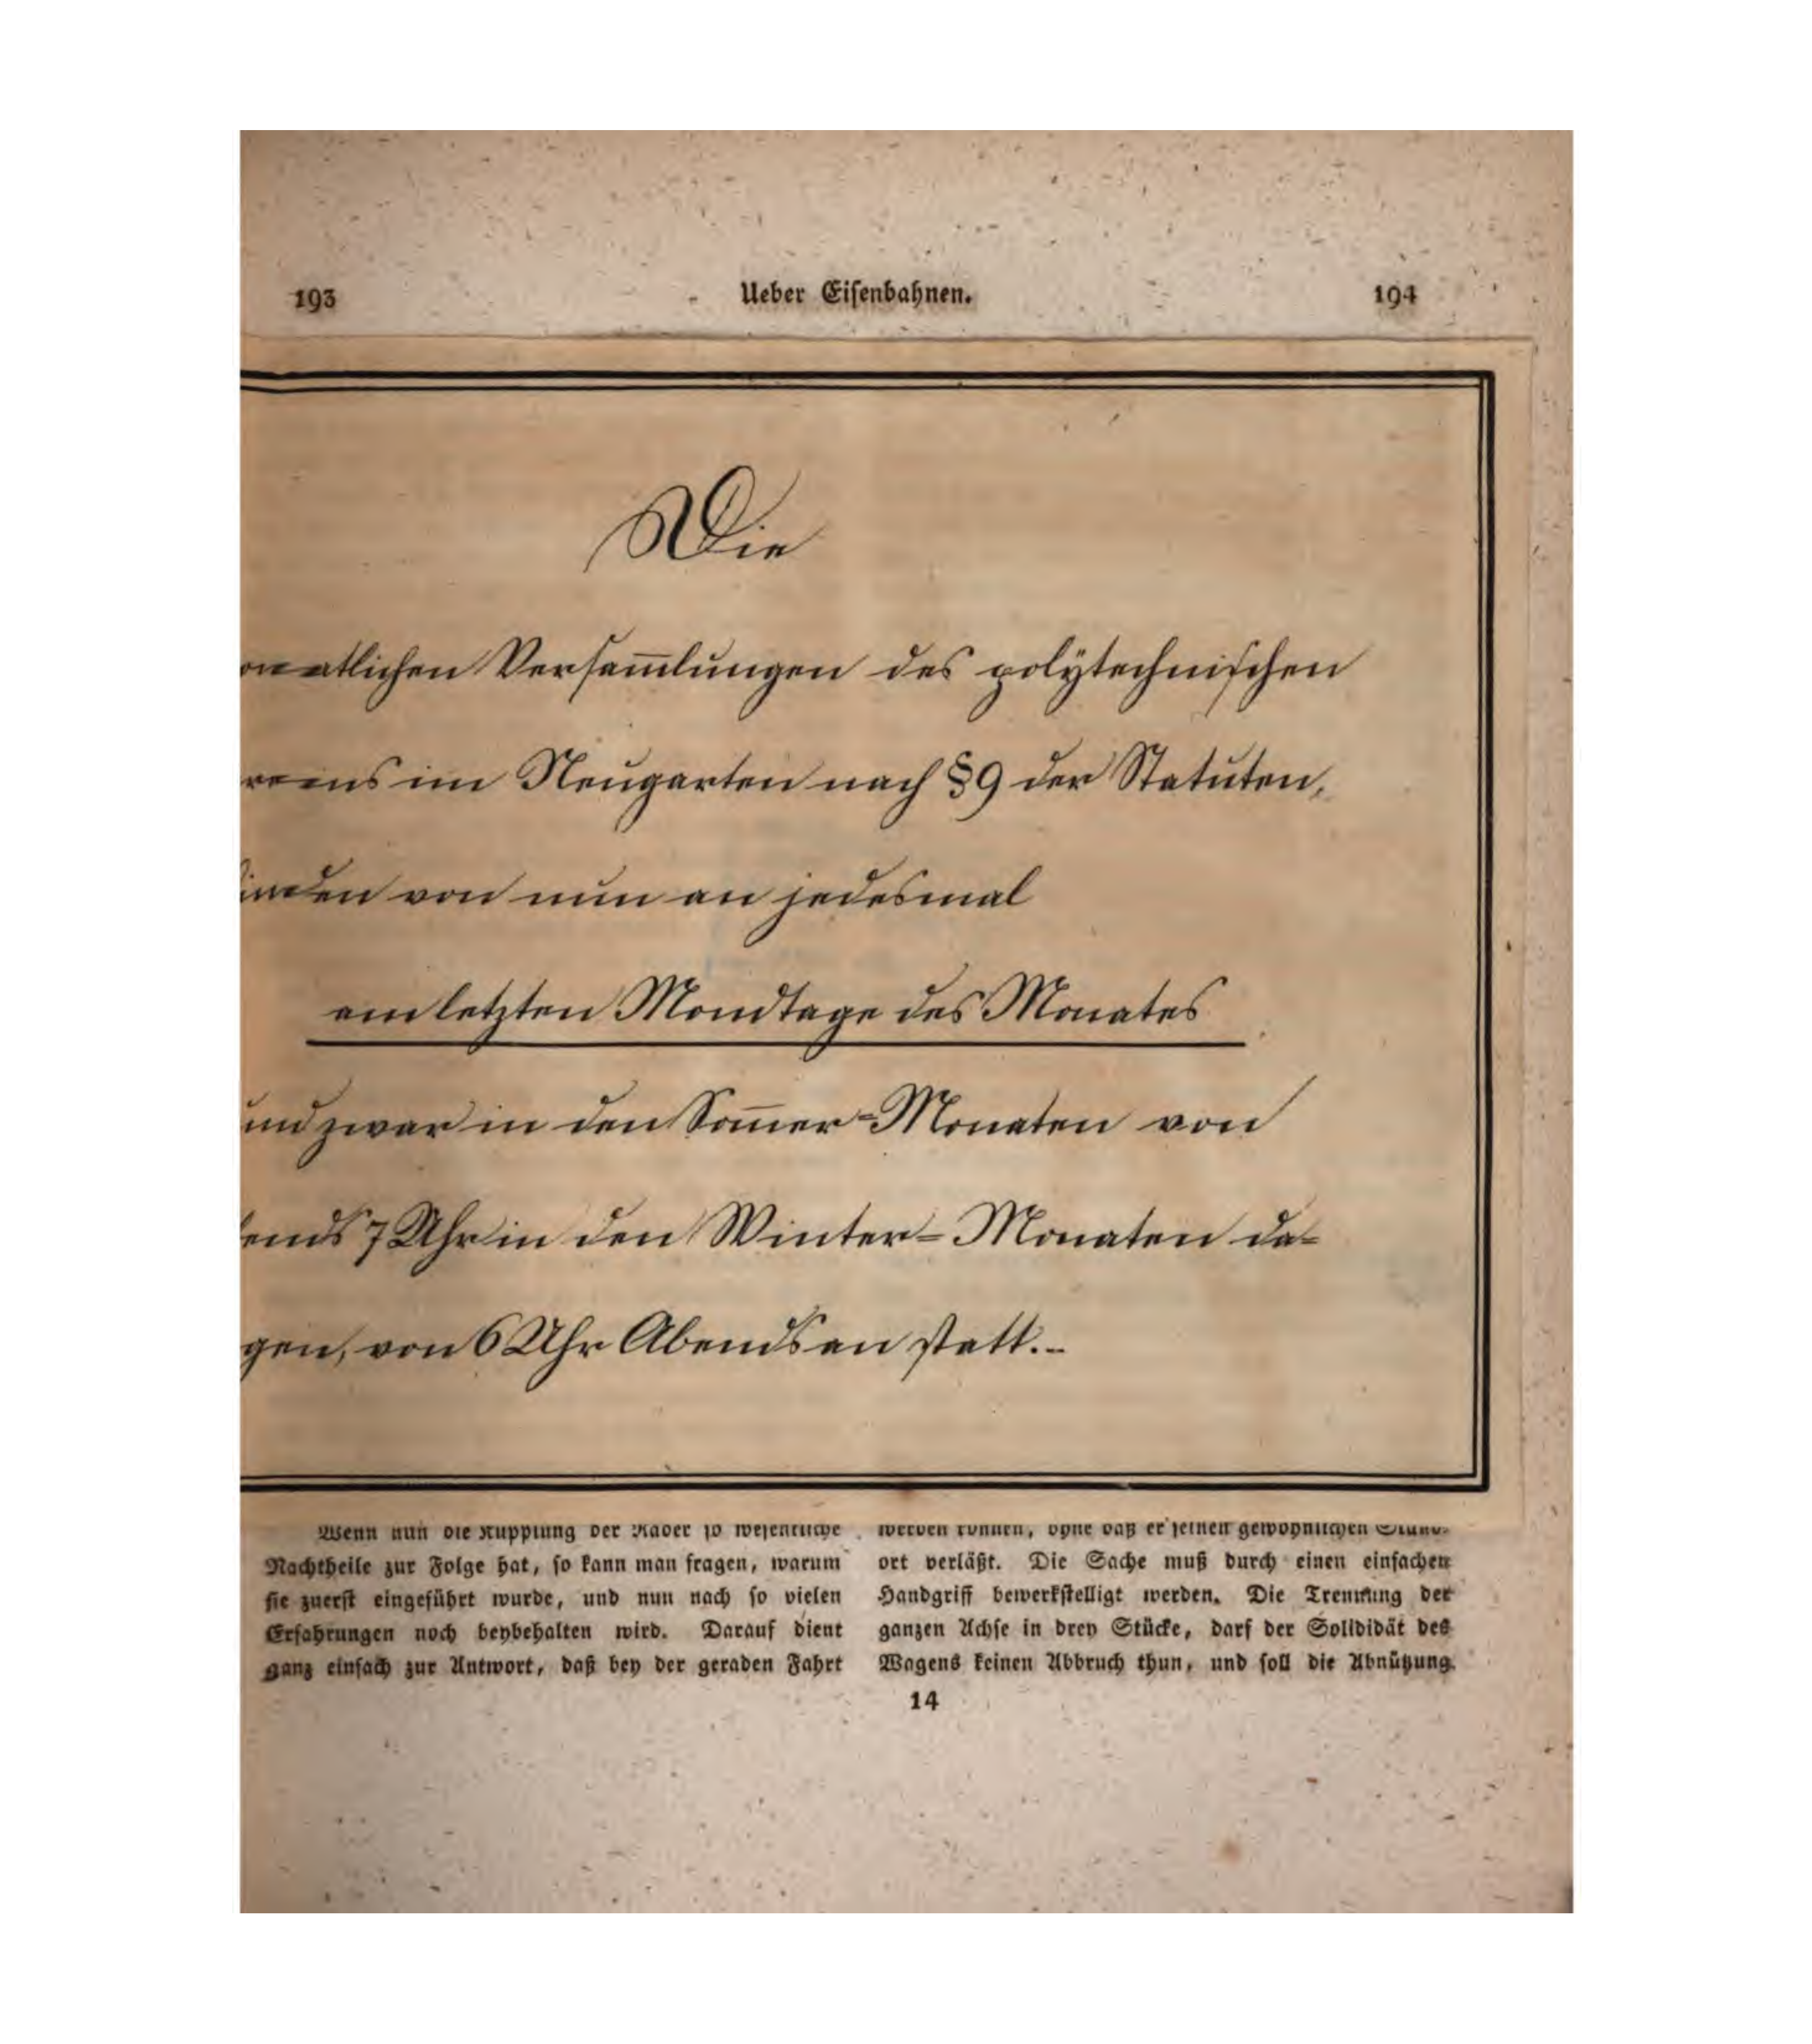 193
Ueber Eisenbahnen.
194
Die
onatlichen Versam̅lungen des polÿtechnischen
reins im Neugarten nach § 9 der Statuten,
inden von nun an jedesmal
am letzten Mondtage des Monates
und zwar in den Som̅er-Monaten von
ends 7 Uhr in den Winter-Monaten da-
gen, von 6 Uhr Abends an statt.-
Wenn nun die Kupplung der Räder so wesentliche
Nachtheile zur Folge hat, so kann man fragen, warum
sie zuerst eingeführt wurde, und nun nach so vielen
Erfahrungen noch beybehalten wird. Darauf dient
ganz einfach zur Antwort, daß bey der geraden Fahrt
werden können, ohne daß er seinen gewöhnlichen Stand-
ort verläßt. Die Sache muß durch einen einfachen
Handgriff bewerkstelligt werden. Die Trennung der
ganzen Achse in drey Stücke, darf der Solididät des
Wagens keinen Abbruch thun, und soll die Abnützung
14